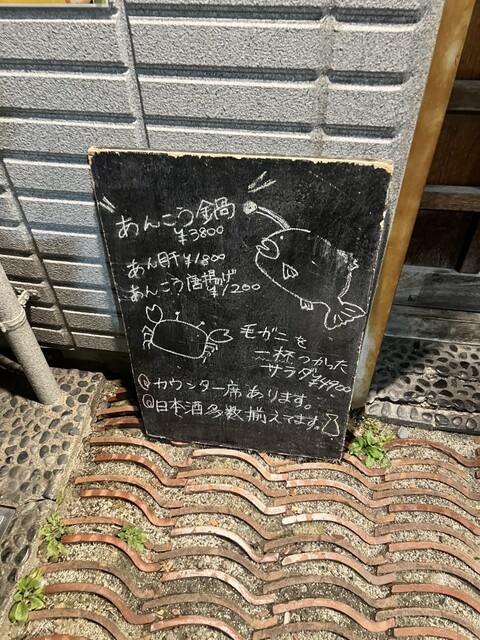 あんこう鍋
¥3800
あん肝¥1800
あんこう唐揚げ
¥1200
毛ガニを
一杯つかった
サラダ¥4900
カウンター席あります。
日本酒多数揃えてます。